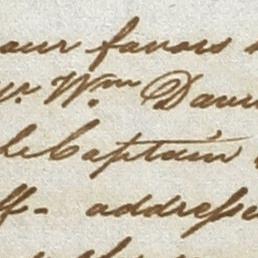 our favors
Wm Davi
Captain
ff - addresse